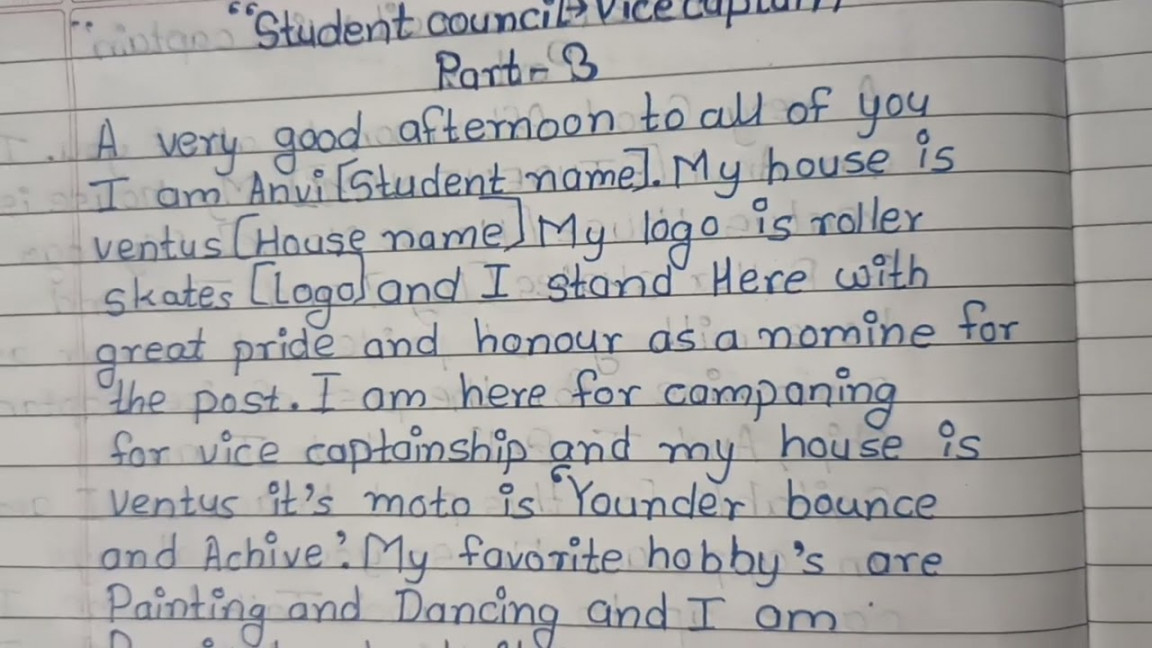 "Student council→ Vice captain
Part - B
A very good afternoon to all of you
I am Anvi [Student name]. My house is
ventus [House name] My logo is roller
skates [logo] and I stand Here with
great pride and honour as a nomine for
the post. I am here for companing
for vice captainship and my house is
ventus it's moto is "Younder bounce
and Achive". My favorite hobby's are
Painting and Dancing and I am